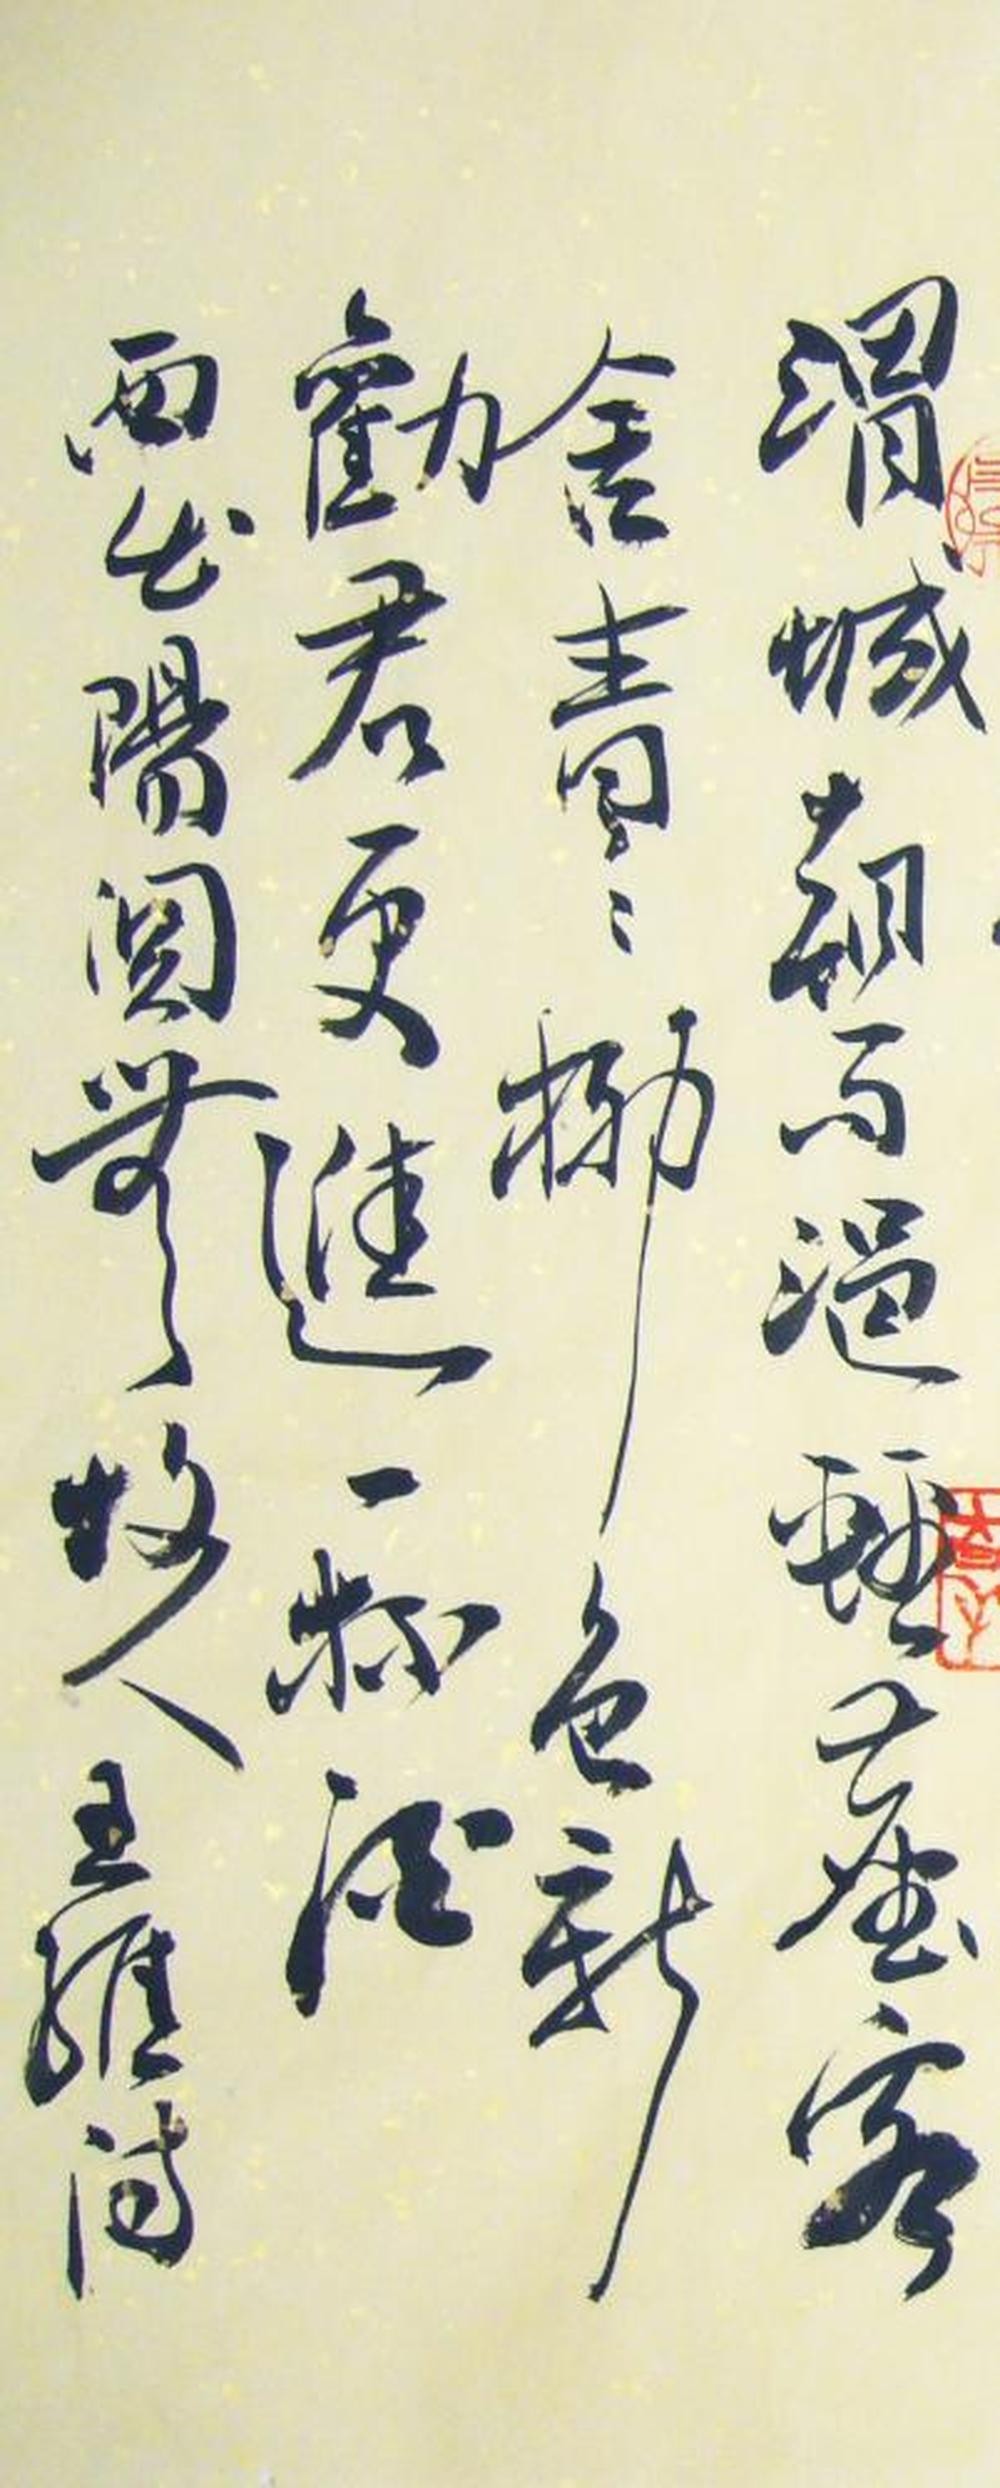 渭城朝雨浥輕塵客
舍青々柳色新
勸君更進一杯酒
西出陽關無故人王維詩